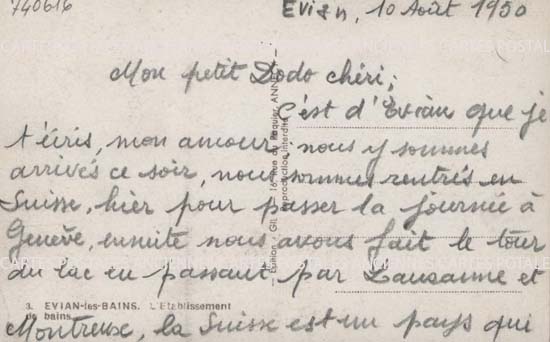 740616
Evian, 10 Août 1950
Mon petit Dodo chéri,
C'est d'Evian que je
t'écris, mon amour, nous y sommes
arrivés ce soir, nous sommes rentrés en
Suisse, hier pour passer la journée à
Genève, ensuite nous avons fait le tour
du lac en passant par Lausanne et
3. EVIAN-les-BAINS. L'Etablissement
de bains
Montreux, la Suisse est un pays qui
16, Rue du Paquier, ANNECY
Reproduction interdite